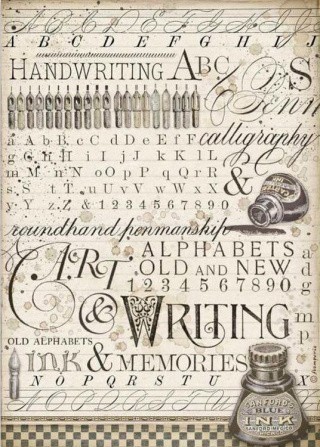 A B C D E F G H I J
HANDWRITING ABC
S
Penm
a A b B c C d D e E f F calligraphy
g G H i I j J k K l L
m M n N o O p P q Q r R
s S t T u U v V w W x X &
y Y z Z & 1 2 3 4 5 6 7 8 9 0
roundhand penmanship
ART ALPHABETS
OLD AND NEW
1 2 3 4 5 6 7 8 9 0
& WRITING
OLD ALPHABETS
ink & MEMORIES
N O P Q R S T U X
SANFORD'S
BLUE
INK
a
d
g
m
p